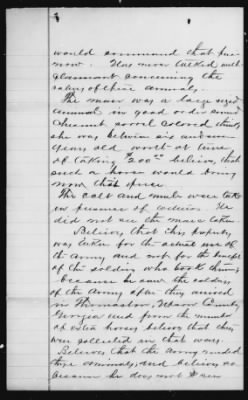 would command that price
now. Has never talked with
claimant concerning the
taking of these animals.
The mare was a large sized
animal in good order and
sorrel colored,
she was between six and
years old worth at time
of taking 200⁰⁰ believes that
such a horse would bring
now that price.
The colt and mule were taken
in presence of witness. He
did not see the mare taken.
Believes that this property
was taken for the actual use of
the Army and not for the benefit
of the soldiers who took them,
because he saw the soldiers
of the Army after they arrived
in Thomaston, Upson County
Georgia and from the number
of extra horses believes that they
were collected in that way.
Believes that the Army needed
these animals, and believes so
because he does not